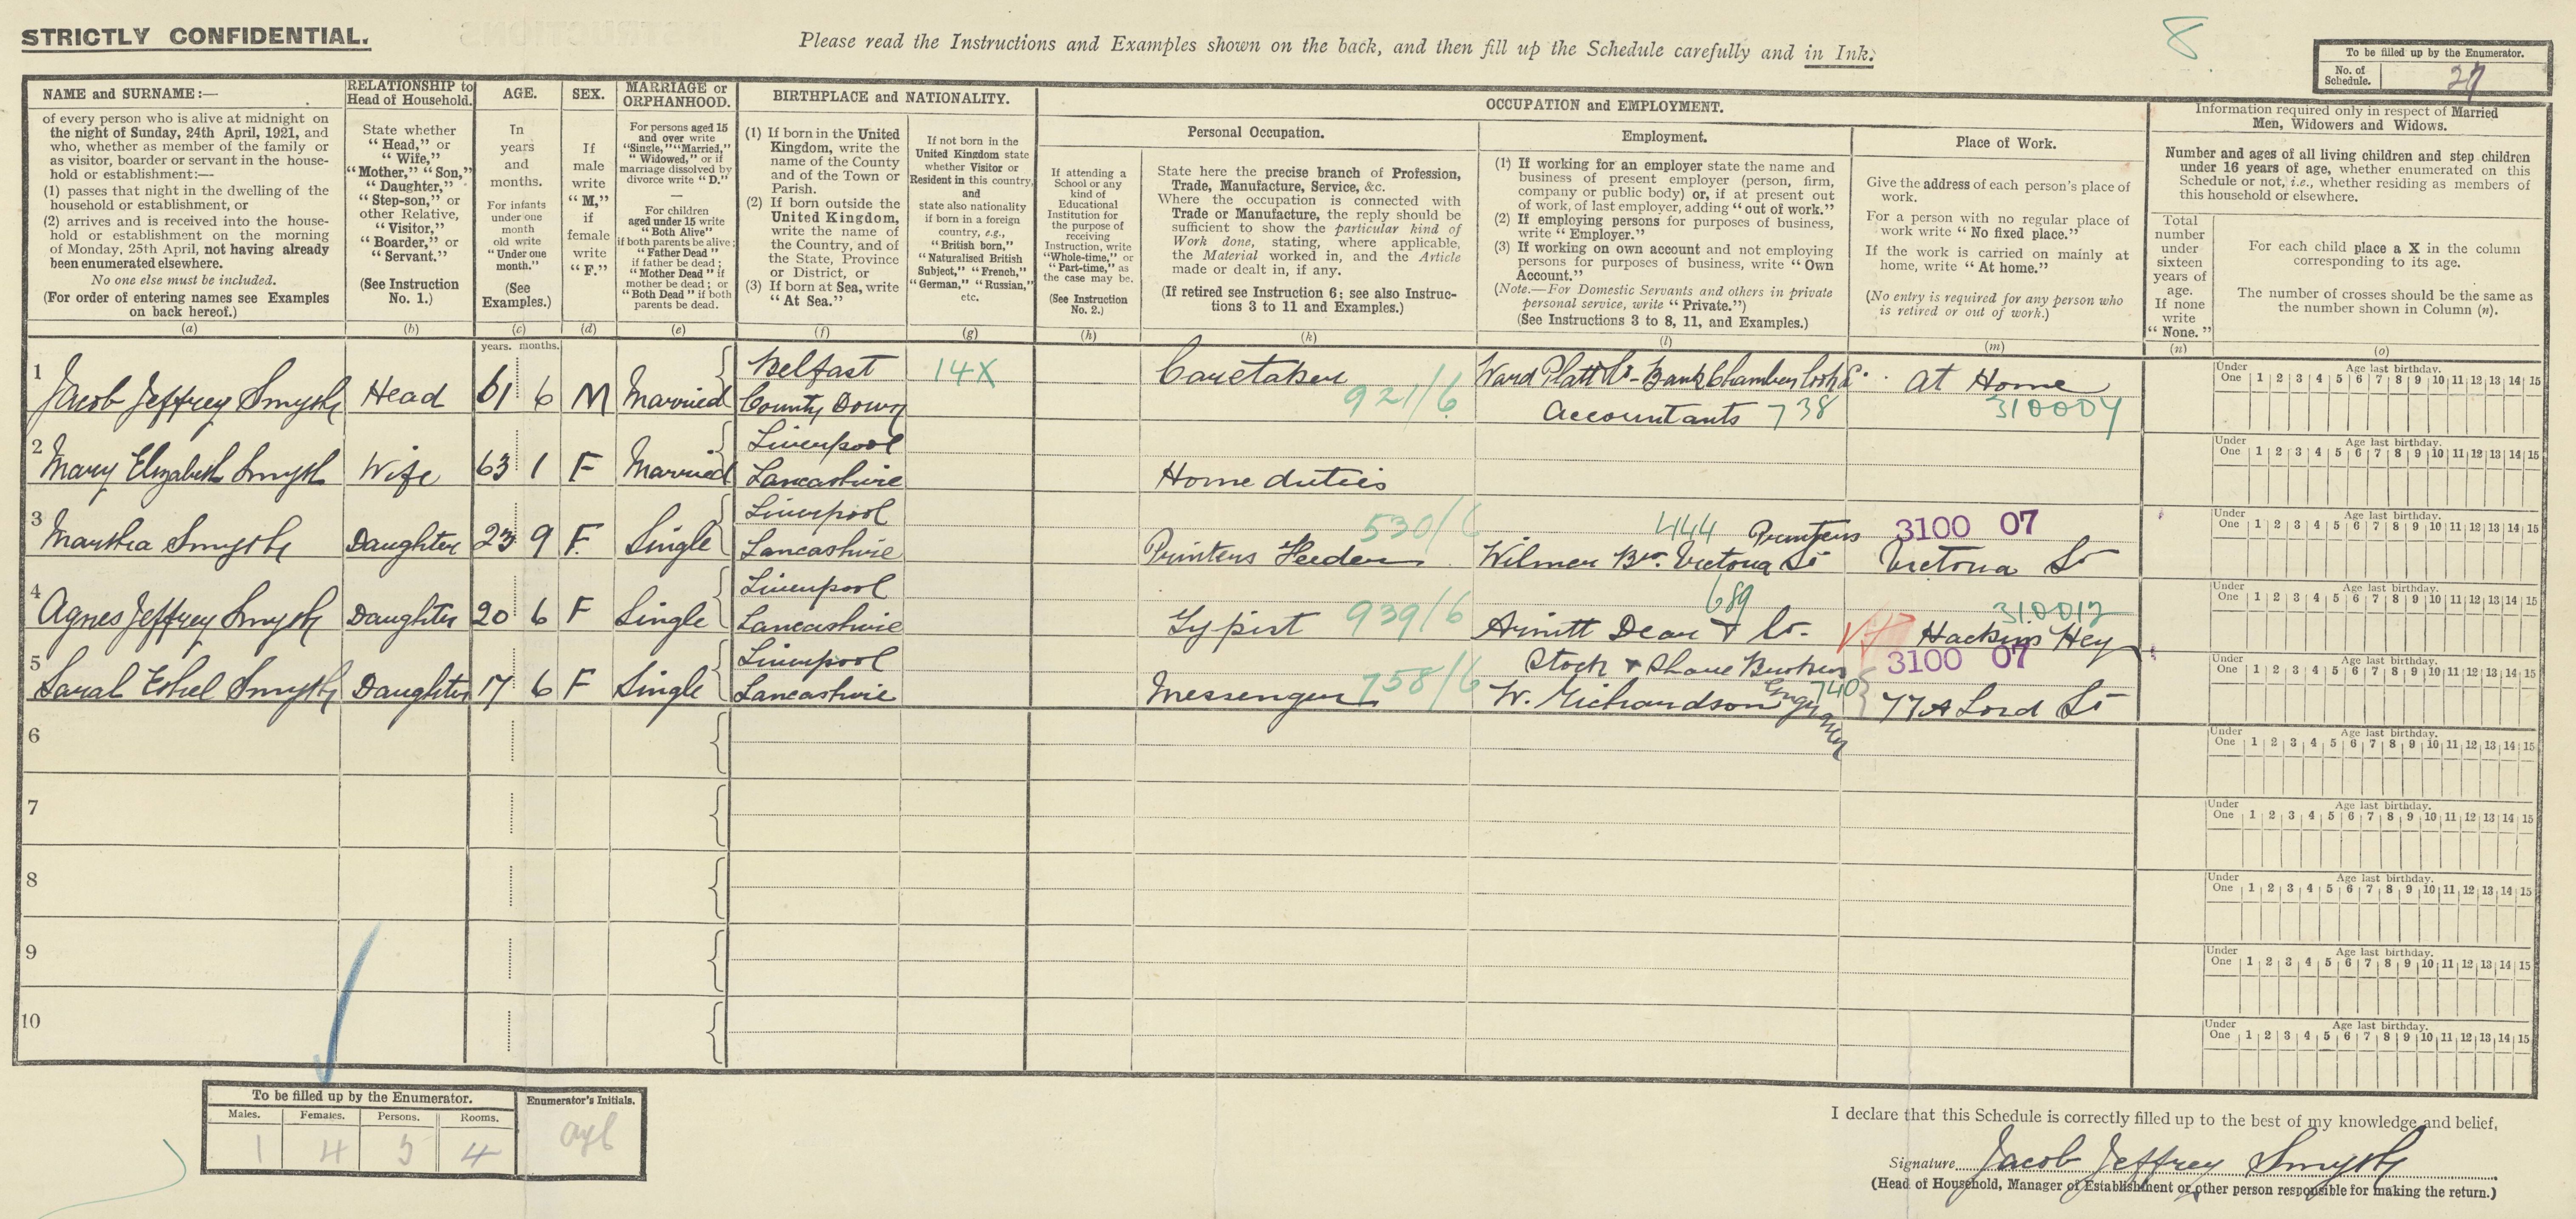 STRICTLY CONFIDENTIAL.
Please read the Instructions and Examples shown on the back, and then fill up the Schedule carefully and in Ink.
8
To be filled up by the Enumerator.
No. of Schedule. 27
NAME and SURNAME:—
of every person who is alive at midnight on
the night of Sunday, 24th April, 1921, and
who, whether as member of the family or
as visitor, boarder or servant in the house-
hold or establishment:—
(1) passes that night in the dwelling of the
household or establishment, or
(2) arrives and is received into the house-
hold or establishment on the morning
of Monday, 25th April, not having already
been enumerated elsewhere.
No one else must be included.
(For order of entering names see Examples
on back hereof.)
(a)
RELATIONSHIP to
Head of Household.
State whether
"Head," or
"Wife,"
"Mother," "Son,"
"Daughter,"
"Step-son," or
other Relative,
"Visitor,"
"Boarder," or
"Servant."
(See Instruction
No. 1.)
(b)
AGE.
In
years
and
months.
For infants
under one
month
old write
"Under one
month."
(See
Examples.)
(c)
years. months.
SEX.
If
male
write
"M,"
if
female
write
"F."
(d)
MARRIAGE or
ORPHANHOOD.
For persons aged 15
and over write
"Single," "Married,"
"Widowed," or if
marriage dissolved by
divorce write "D."
For children
aged under 15 write
"Both Alive"
if both parents be alive;
"Father Dead"
if father be dead;
"Mother Dead" if
mother be dead; or
"Both Dead" if both
parents be dead.
(e)
BIRTHPLACE and NATIONALITY.
(1) If born in the United
Kingdom, write the
name of the County
and of the Town or
Parish.
(2) If born outside the
United Kingdom,
write the name of
the Country, and of
the State, Province
or District, or
(3) If born at Sea, write
"At Sea."
(f)
If not born in the
United Kingdom state
whether Visitor or
Resident in this country,
and
state also nationality
if born in a foreign
country, e.g.,
"British born,"
"Naturalised British
Subject," "French,"
"German," "Russian,"
etc.
(g)
OCCUPATION and EMPLOYMENT.
If attending a
School or any
kind of
Educational
Institution for
the purpose of
receiving
Instruction, write
"Whole-time," or
"Part-time," as
the case may be.
(See Instruction
No. 2.)
(h)
Personal Occupation.
State here the precise branch of Profession,
Trade, Manufacture, Service, &c.
Where the occupation is connected with
Trade or Manufacture, the reply should be
sufficient to show the particular kind of
Work done, stating, where applicable,
the Material worked in, and the Article
made or dealt in, if any.
(If retired see Instruction 6: see also Instruc-
tions 3 to 11 and Examples.)
(k)
Employment.
(1) If working for an employer state the name and
business of present employer (person, firm,
company or public body) or, if at present out
of work, of last employer, adding "out of work."
(2) If employing persons for purposes of business,
write "Employer."
(3) If working on own account and not employing
persons for purposes of business, write "Own
Account."
(Note.—For Domestic Servants and others in private
personal service, write "Private.")
(See Instructions 3 to 8, 11, and Examples.)
(l)
Place of Work.
Give the address of each person's place of
work.
For a person with no regular place of
work write "No fixed place."
If the work is carried on mainly at
home, write "At home."
(No entry is required for any person who
is retired or out of work.)
(m)
Information required only in respect of Married
Men, Widowers and Widows.
Number and ages of all living children and step children
under 16 years of age, whether enumerated on this
Schedule or not, i.e., whether residing as members of
this household or elsewhere.
Total
number
under
sixteen
years of
age.
If none
write
"None."
(n)
For each child place a X in the column
corresponding to its age.
The number of crosses should be the same as
the number shown in Column (n).
(o)
1 Jacob Jeffrey Smyth Head 61 6 M Married Belfast County Down 14X Caretaker 921/6 Ward Platt Co - Bank Chambers Cook St. Accountants 738 At Home 310004
Under One 1 2 3 4 5 6 7 8 9 10 11 12 13 14 15 Age last birthday.
2 Mary Elizabeth Smyth Wife 63 1 F Married Liverpool Lancashire Home duties
Under One 1 2 3 4 5 6 7 8 9 10 11 12 13 14 15 Age last birthday.
3 Martha Smyth Daughter 23 9 F. Single Liverpool Lancashire Printers Feeder 530/6 444 Printers Wilmer Bros. Victoria St 3100 07 Victoria St
Under One 1 2 3 4 5 6 7 8 9 10 11 12 13 14 15 Age last birthday.
4 Agnes Jeffrey Smyth Daughter 20 6 F Single Liverpool Lancashire Typist 939/6 689 Arnitt Dean & Co. Stock & Share Brokers 310012 Hackins Hey
Under One 1 2 3 4 5 6 7 8 9 10 11 12 13 14 15 Age last birthday.
5 Sarah Ethel Smyth Daughter 17 6 F Single Liverpool Lancashire Messenger 758/6 W. Richardson Engraver 740 3100 07 77A Lord St
Under One 1 2 3 4 5 6 7 8 9 10 11 12 13 14 15 Age last birthday.
6
Under One 1 2 3 4 5 6 7 8 9 10 11 12 13 14 15 Age last birthday.
7
Under One 1 2 3 4 5 6 7 8 9 10 11 12 13 14 15 Age last birthday.
8
Under One 1 2 3 4 5 6 7 8 9 10 11 12 13 14 15 Age last birthday.
9
Under One 1 2 3 4 5 6 7 8 9 10 11 12 13 14 15 Age last birthday.
10
Under One 1 2 3 4 5 6 7 8 9 10 11 12 13 14 15 Age last birthday.
To be filled up by the Enumerator.
Males. Females. Persons. Rooms.
1 4 5 4
Enumerator's Initials.
I declare that this Schedule is correctly filled up to the best of my knowledge and belief,
Signature Jacob Jeffrey Smyth
(Head of Household, Manager of Establishment or other person responsible for making the return.)